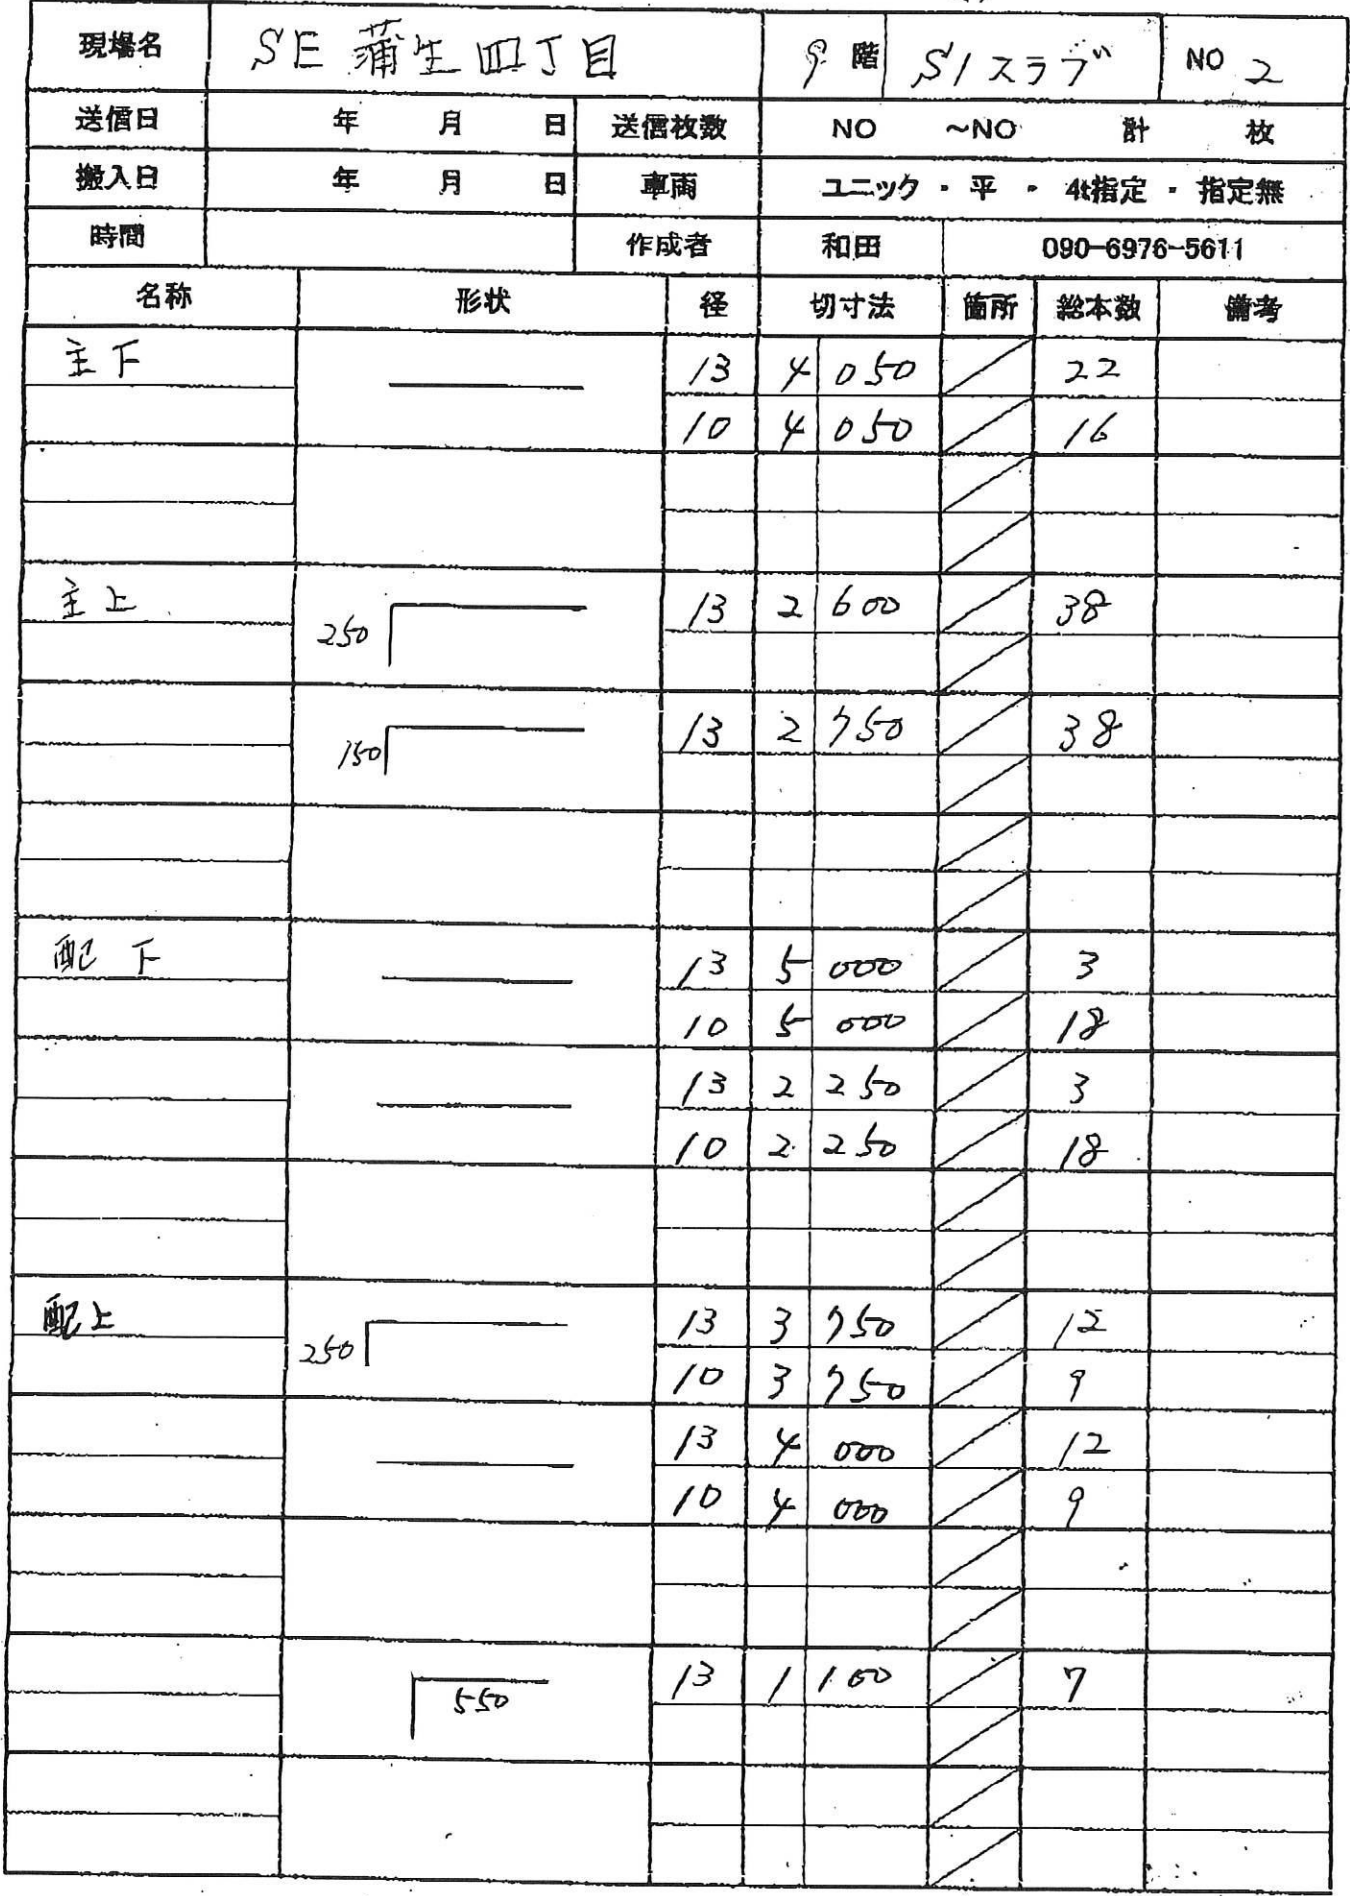 現場名 SE 蒲生四丁目 9 階 S1スラブ NO 2
送信日 年 月 日 送信枚数 NO ～NO 計 枚
搬入日 年 月 日 車両 ユニック ・ 平 ・ 4t指定 ・ 指定無
時間 作成者 和田 090-6976-5611
名称 形状 径 切寸法 箇所 総本数 備考
主下 13 4 050 22
10 4 050 16
主上 250 13 2 600 38
150 13 2 750 38
配下 13 5 000 3
10 5 000 18
13 2 250 3
10 2 250 18
配上 250 13 3 750 12
10 3 750 9
13 4 000 12
10 4 000 9
550 13 1 100 7